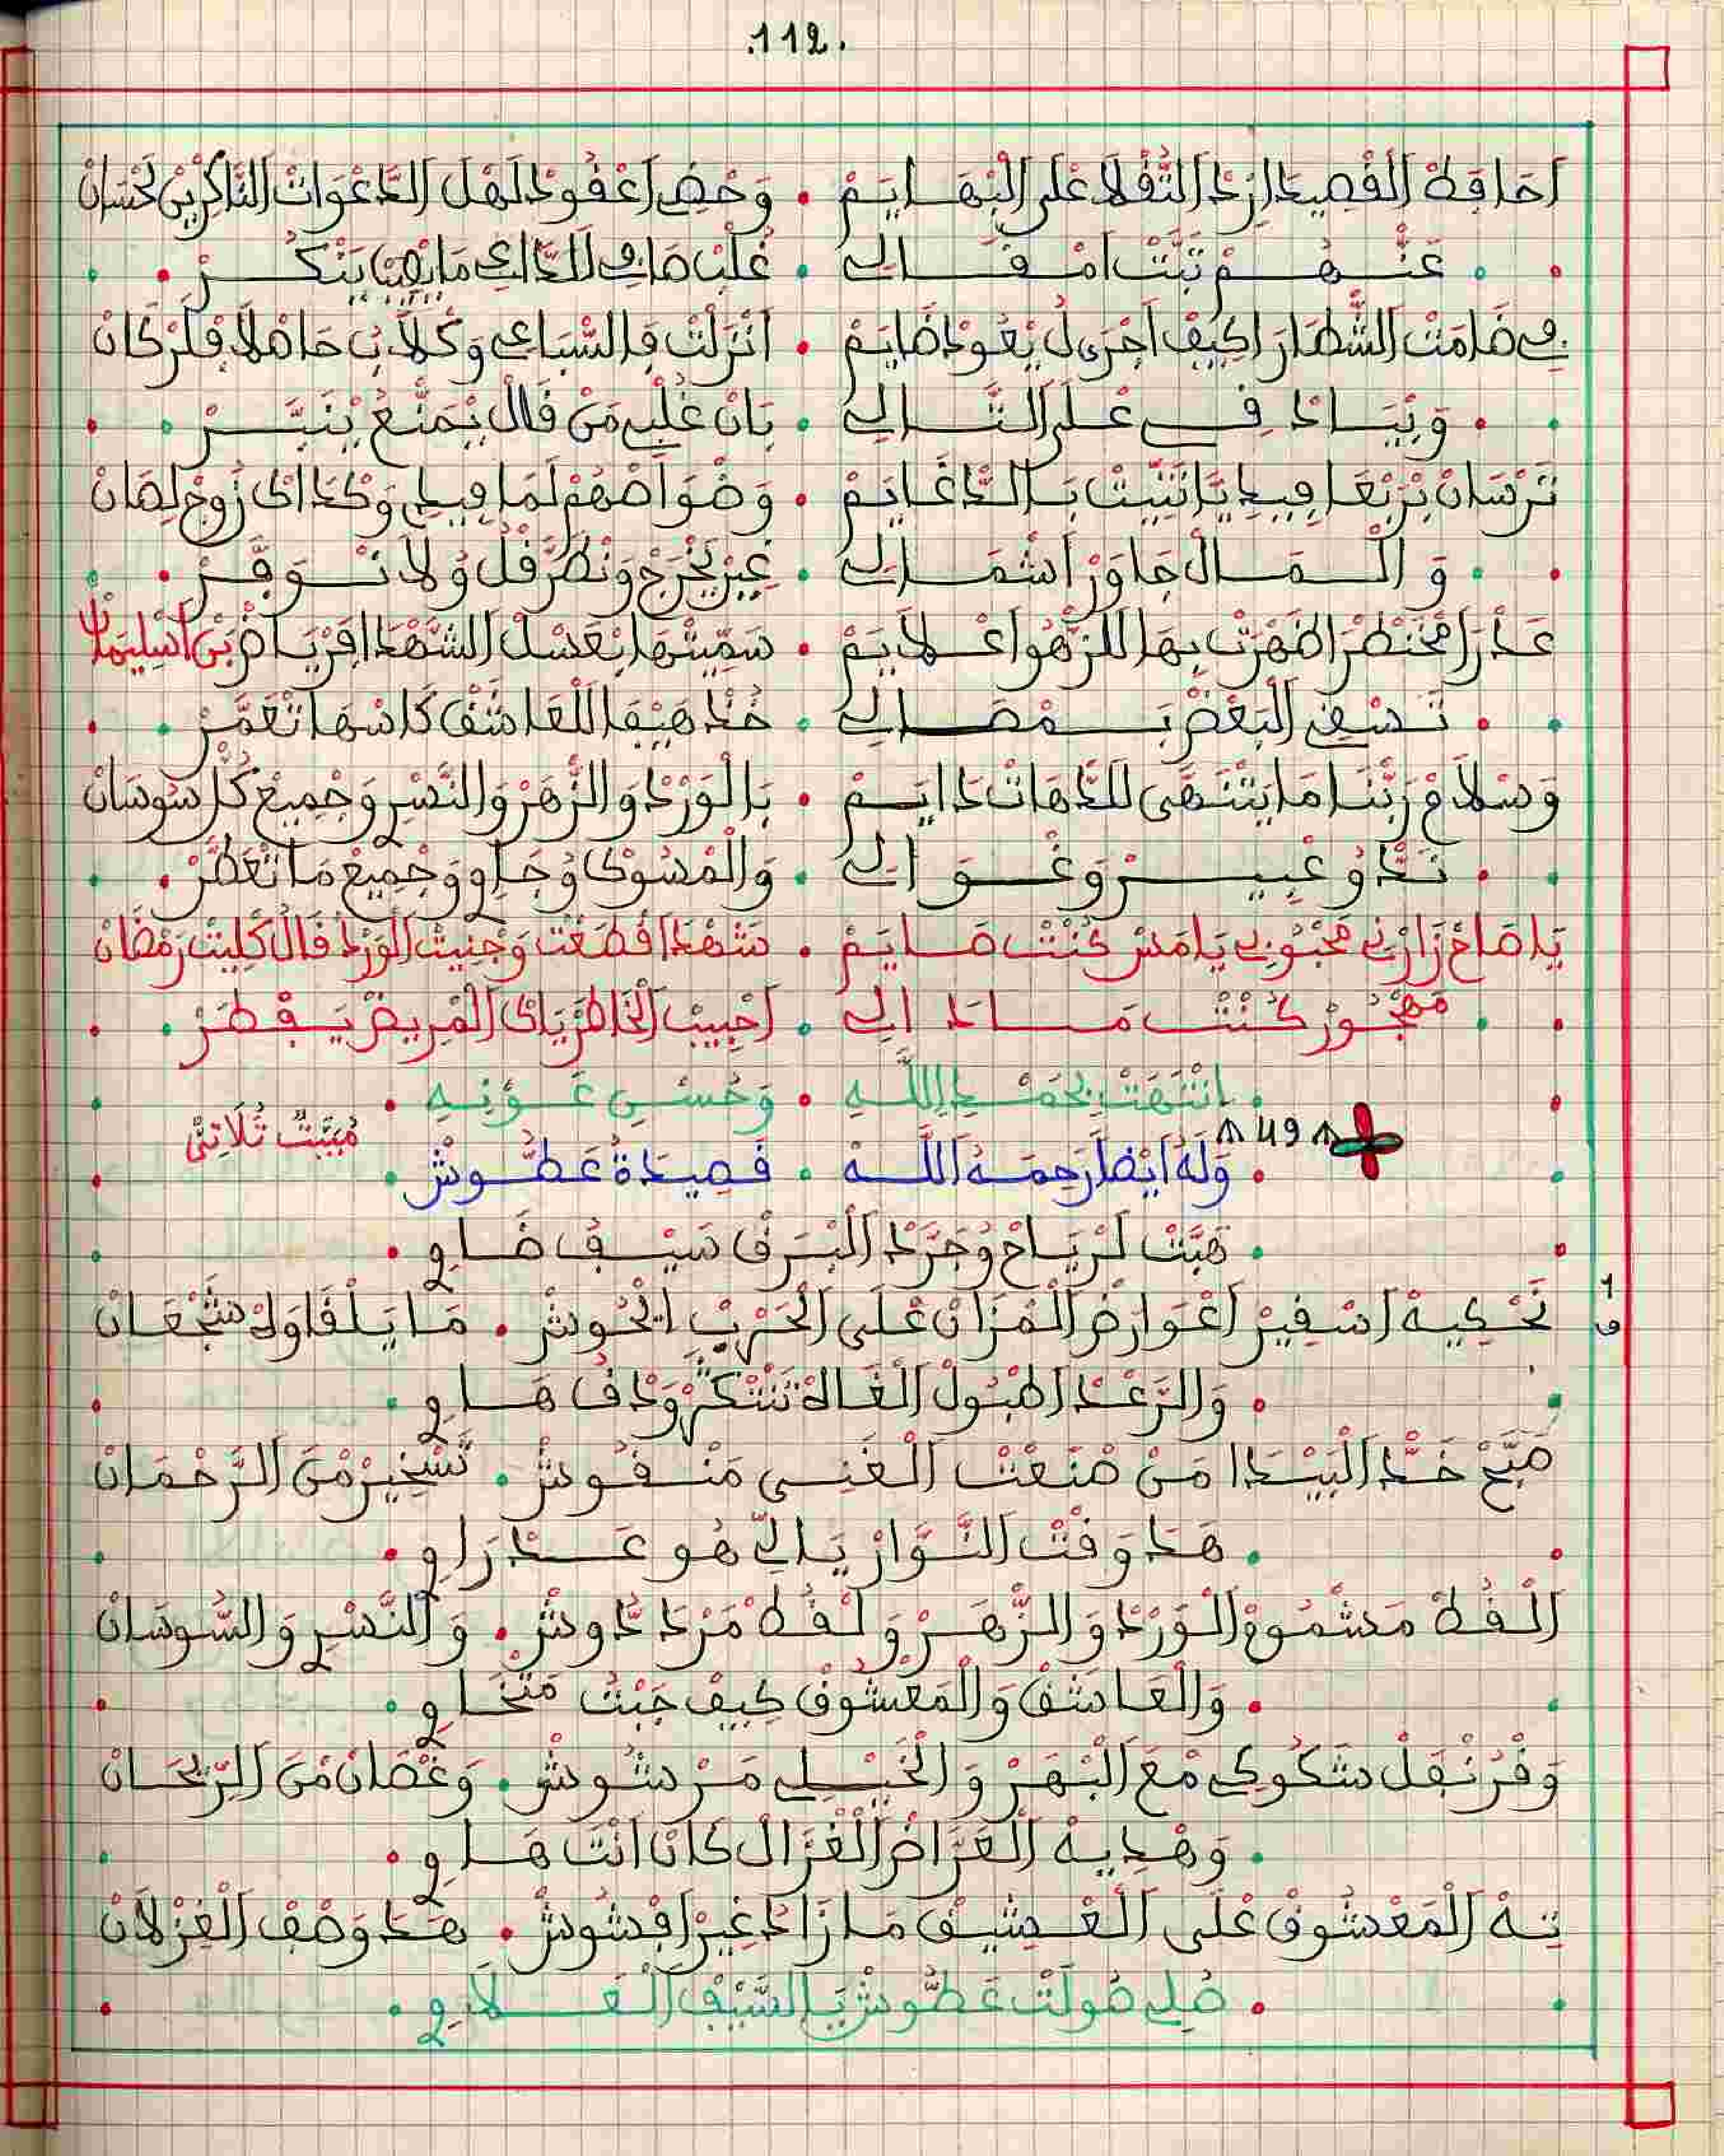 .112.
اَحَافَظْ اَلْقْصِيدَا اَرْدَ اَلثّْفَلْ اعْلَى الْبْهَايَمْ • وَحْضِ اَعْقُودْ لَهْلْ اَلدَّعْوَاتْ النَّاكْرِينْ لَحْسَانْ
عَنْهُمْ ثَبَّتْ اَمْقَالِي •
فِي ضَامَتْ الشُّطَّارَ اكِيفْ اَجْرَى لُ يْعُودْ ضَايَمْ • اَنْزَلْتْ فَالسّْبَاعِي وَكْلَابُ جَاهْلَا فَلَرْكَانْ
وَبْيَادْقِي عْلَى التَّالِي • بَانْ غُلْبِي مَنْ قَالْ يْمَنَّعْ
تَرْسَانْ بَرْبْعَا فِيدِ يَّا تَنْبِيتْ بَالدّْعَايَمْ • وَضْوَامْهُمْ لَمَا فِيدِي وَكْدَاكْ زُوجْ لِهَانْ
وَالْمَالْ جَاوَزْ اَشْمَالِي • غِيرْ يَخْرَجْ وَنْظَرْ قُلْ وُلَا تْوَقَّرْ
عَدْرَا مْخَنْطْرَا ظَهْرَتْ بِهَا لَلزّْهُو اعْلَايَمْ • سَمِّيتْهَا بْعَسْلْ الشَّهْدَا فَرْيَاضْ بَنْ اَسْلِيمَانْ
تَسْقِي الْبَعْضْ بَمْصَالِي • خُدْ هِيفَا لَلْعَاشَقْ كَاسْهَا تْعَمَّرْ
وَسْلَامْ رَبّْنَا مَا يَتْنَهَى لَلدّْهَاتْ دَايَمْ • بَالْوَرْدْ وَالزّْهَرْ وَالنَّسْرِي وَجْمِيعْ كُلْ سُوسَانْ
نَدّْ وُعْبِيرْ وَغْوَالِي • وَالْمْسُوكْ وُجَاوِي وَجْمِيعْ مَا تْعَطَّرْ
يَا صَاحْ زَارْنِي مَحْبُوبِي يَا مَسْ كُنْتْ صَايَمْ • شَهْدَا قْطَعْتْ وَجْنِيتْ الْوَرْدْ قَالْ كْلِيتْ رَمْضَانْ
مَهْجُورْ كُنْتْ سَادَالِي • اَحْبِيبْ الْخَاطَرْ يَاكْ الْمْرِيضْ يَفْطَرْ
انْتَهَتْ بِحَمْدِ اللَّهِ • وَحُسْنِ عَوْنِهِ
مُبَيَّتٌ ثُلَاثِيٌّ
49
وَلَهُ اَيْضًا رَحِمَهُ اللَّه • قَصِيدَةُ عَطُّوشْ
هَبَّتْ لَرْيَاحْ وُجَرَّدْ الْبَرْقْ سَيْفُ ضَاوِي
1
ق
تَحْكِيهْ اَسْفِيرْ اَعْوَارَضْ الْمْزَانْ عْلَى الْحَرْبْ ايْحُوشْ • مَا يَلْقَاوَهْ شَجْعَانْ
وَالرّْعْدْ اطْبُولْ الْغَالَةْ وَدْفُ هَاوِي
صَبَّحْ خَدّْ الْبَيْدَا مَنْ صَنْعَتْ الْغَنِي مَنْقُوشْ • تَسْخِيرْ مْنَ الرَّحْمَانْ
هَدَ وَقْتْ النَّوَّارْ يَالِّي هُو عَدْرَاوِي
الْقُطْ مَشْمُومْ الْوَرْدْ وَالزّْهَرْ وَلْقُطْ مَرْدَدُّوشْ • وَالنَّسْرِي وَالسُّوسَانْ
وَالْعَاشَقْ وَالْمَعْشُوقْ كِيفْ جَبْتُ مَتْخَاوِي
وَقْرُنْفَلْ شَكْوكِي مْعَ الْبْهَرْ وَالْخَيْلِي مَرْشُوشْ • وَغْصَانْ مْنَ الرِّيحَانْ
وَهْدِيهْ الْعَرَّاضْ الْغْزَالْ كَانْ انْتَ هَاوِي
تِهْ الْمَعْشُوقْ عْلَى الْعْشِيقْ مَا زَادْ غِيرْ اَفْشُوشْ • هَدَ وَصْفْ الْغَزْلَانْ
صُلِي صُولَتْ عَطُّوشْ يَا السِّيفْ الْفَلَاوِي